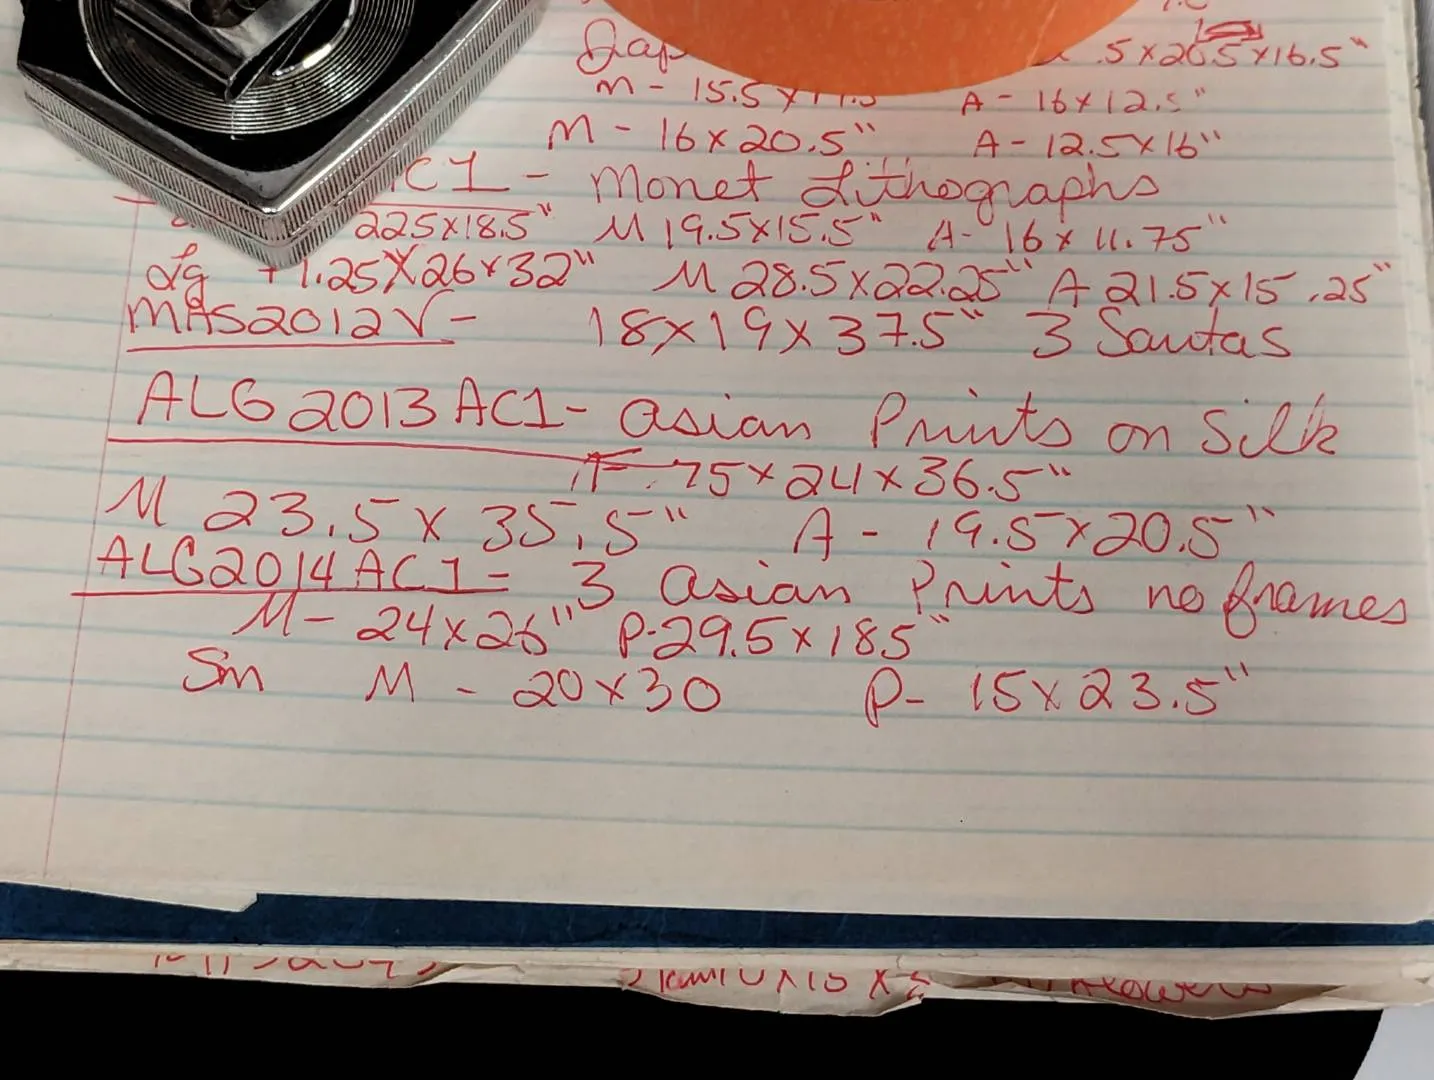 .5x20.5x16.5"
M - 15.5 x A - 16x12.5"
M - 16x20.5" A - 12.5x16"
C1 - Monet Lithographs
225x18.5" M 19.5x15.5" A - 16x11.75"
Lg 1.25x26x32" M 28.5x22.25" A 21.5x15.25"
MAS2012V - 18x19x37.5" 3 Santas
ALG2013AC1 - Asian Prints on Silk
F .75x24x36.5"
M 23.5x35.5" A - 19.5x20.5"
ALG2014AC1 - 3 Asian Prints no frames
M - 24x26" P-29.5x185"
Sm M - 20x30 P- 15x23.5"